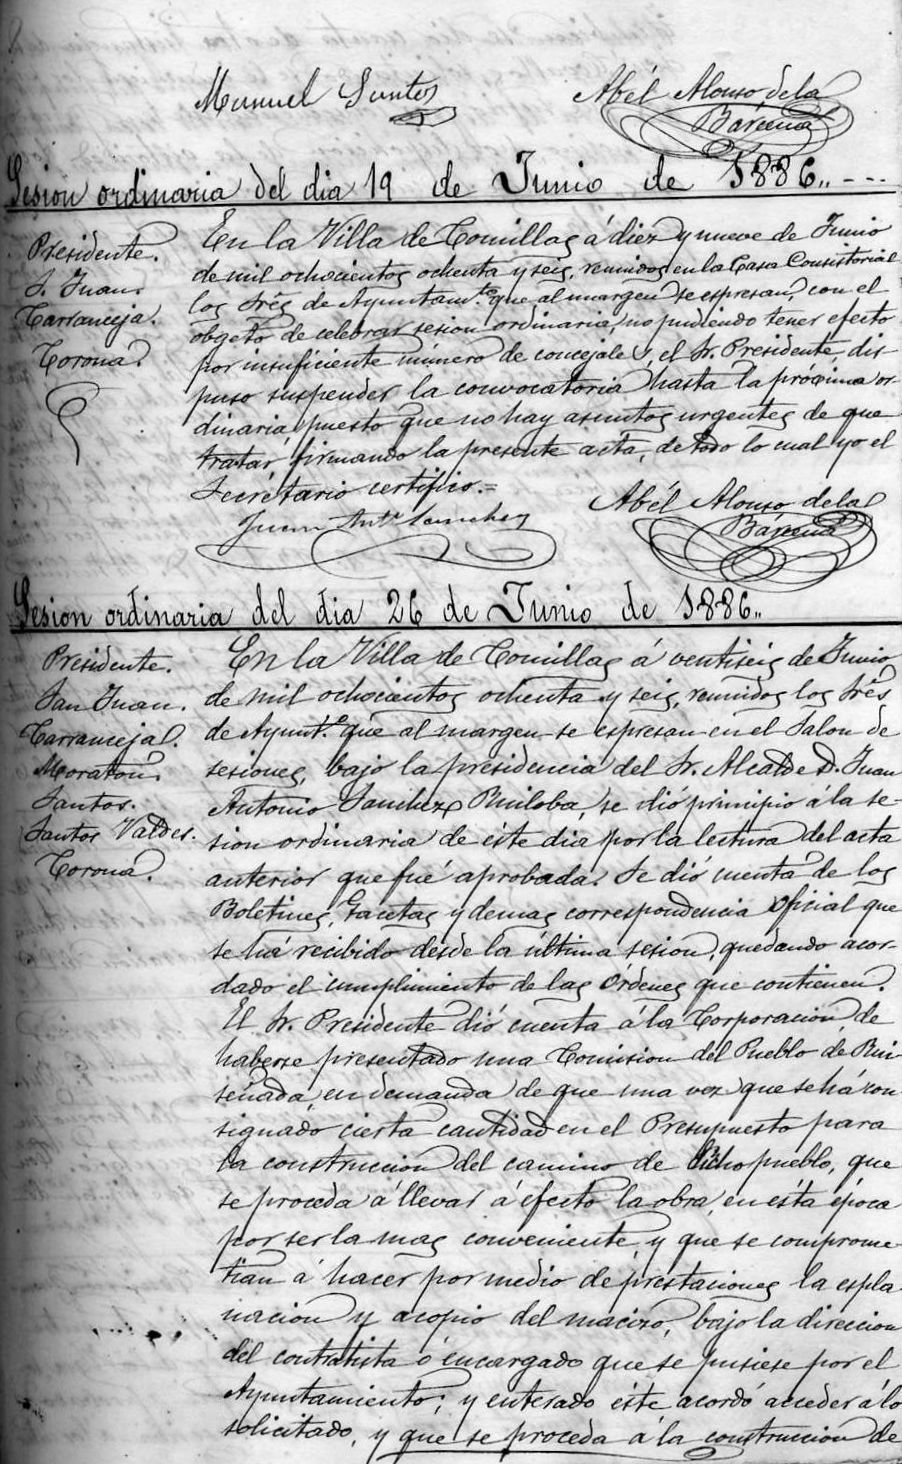 Manuel Santos
Abél Alonso de la
Bárcena
Sesion ordinaria del dia 19 de Junio de 1886.. - - -
Presidente.
S. Juan.
Carranceja.
Corona.
En la Villa de Comillas á diez y nueve de Junio
de mil ochocientos ochenta y seis, reunidos en la Casa Consistorial
los Srés de Ayuntam.to que al margen se espresan, con el
obgeto de celebrar sesion ordinaria, no pudiendo tener efecto
por insuficiente número de concejales, el Sr. Presidente, dis-
puso suspender la convocatoria hasta la próxima or-
dinaria, puesto que no hay asuntos urgentes de que
tratar, firmando la presente acta, de todo lo cual yo el
Secretario certifico.=
Juan Ant.o Sanchez
Abél Alonso de la
Bárcena
Sesion ordinaria del dia 26 de Junio de 1886..
Presidente.
San Juan.
Carranceja.
Moraton.
Santos.
Santos Valdes.
Corona.
En la Villa de Comillas á ventiseis de Junio
de mil ochocientos ochenta y seis, reunidos los Srés
de Ayunt.o que al margen se espresan en el Salon de
sesiones, bajo la presidencia del Sr. Alcalde D. Juan
Antonio Sanchez Ruiloba, se dió principio á la se-
sion ordinaria de éste dia por la lectura del acta
anterior que fué aprobada. Se dió cuenta de los
Boletines, Gacetas y demas correspondencia oficial que
se há recibido desde la última sesion, quedando acor-
dado el cumplimiento de las Ordenes que contienen.
El Sr. Presidente dió cuenta á la Corporacion de
haberse presentado una Comision del Pueblo de Rui-
señada, en demanda de que una vez que se há con-
signado cierta cantidad en el Presupuesto para
la construccion del camino de dicho pueblo, que
se proceda á llevar á efecto la obra, en ésta época
por ser la mas conveniente, y que se comprome-
tian á hacer por medio de prestaciones la espla-
nacion y acopio del macizo, bajo la direccion
del contratista ó encargado que se pusiese por el
Ayuntamiento; y enterado éste acordó acceder á lo
solicitado, y que se proceda á la construccion de